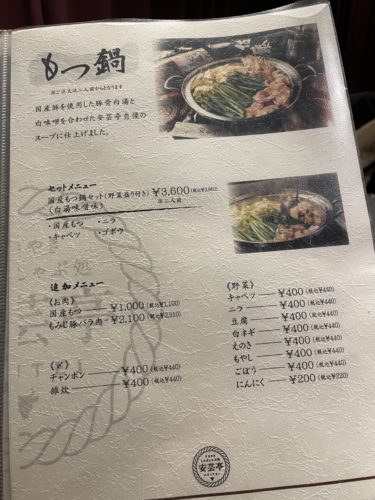 もつ鍋
※ご注文は二人前からとなります
国産豚を使用した豚骨白湯と
白味噌を合わせた安芸亭自慢の
スープに仕上げました。
セットメニュー
国産もつ鍋セット(野菜盛り付き) ¥3,600(税込¥3,960)
(白湯味噌味) ※二人前
・国産もつ ・ニラ
・キャベツ ・ゴボウ
追加メニュー
《お肉》
国産もつ ¥1,000(税込¥1,100)
もみじ豚バラ肉 ¥2,100(税込¥2,310)
《〆》
チャンポン ¥400(税込¥440)
雑炊 ¥400(税込¥440)
《野菜》
キャベツ ¥400(税込¥440)
ニラ ¥400(税込¥440)
豆腐 ¥400(税込¥440)
白ネギ ¥400(税込¥440)
えのき ¥400(税込¥440)
もやし ¥400(税込¥440)
ごぼう ¥400(税込¥440)
にんにく ¥200(税込¥220)
安芸亭